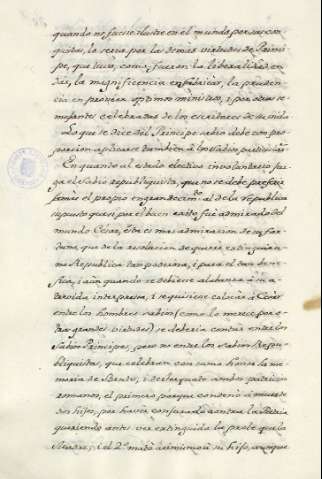 quando no fuese ilustre en el mundo por sus con
quistas, lo seria por la demas virtudes de Princi
pe, que tuvo, como fueron la liberalidad en
dar, la magnificencia en fabricar, la pruden
cia en proveer optimos ministros, i por otras se
mejantes celebradas de los escritores de su vida
Lo que se dice del Principe sabio debe con pro
porcion aplicarse tambien à los Sabios particulares
En quanto al estado electivo involuntario juz
ga el Sabio republiquista, que no se debe preferir
jamas el propio engrandecimto al de la republica
supuesto que si por el buen exito fué admirado del
mundo César, esta es mas admiracion de su for
tuna, que de la resolucion de querer extinguir u
na Republica tan poderosa, i para el tan bene
fica; i aun quando se debiese alabanza à su a
trevida interpresa, i se quisiese colocar à Cesar
entre los hombres sabios (como lo merece por o
tras grandes virtudes) se deberia contar entre los
Sabios Principes, pero no entre los Sabios Repu
bliquistas, que celebran con suma honra la me
moria de Bruto, i de Torquato ambos patricios
romanos, el primero porque condenó à muerte
sus hijos, por haver conjurado contra la Patria
queriendo antes ver extinguida la prole que la
i el 2º mató asimismo à su hijo, aunque